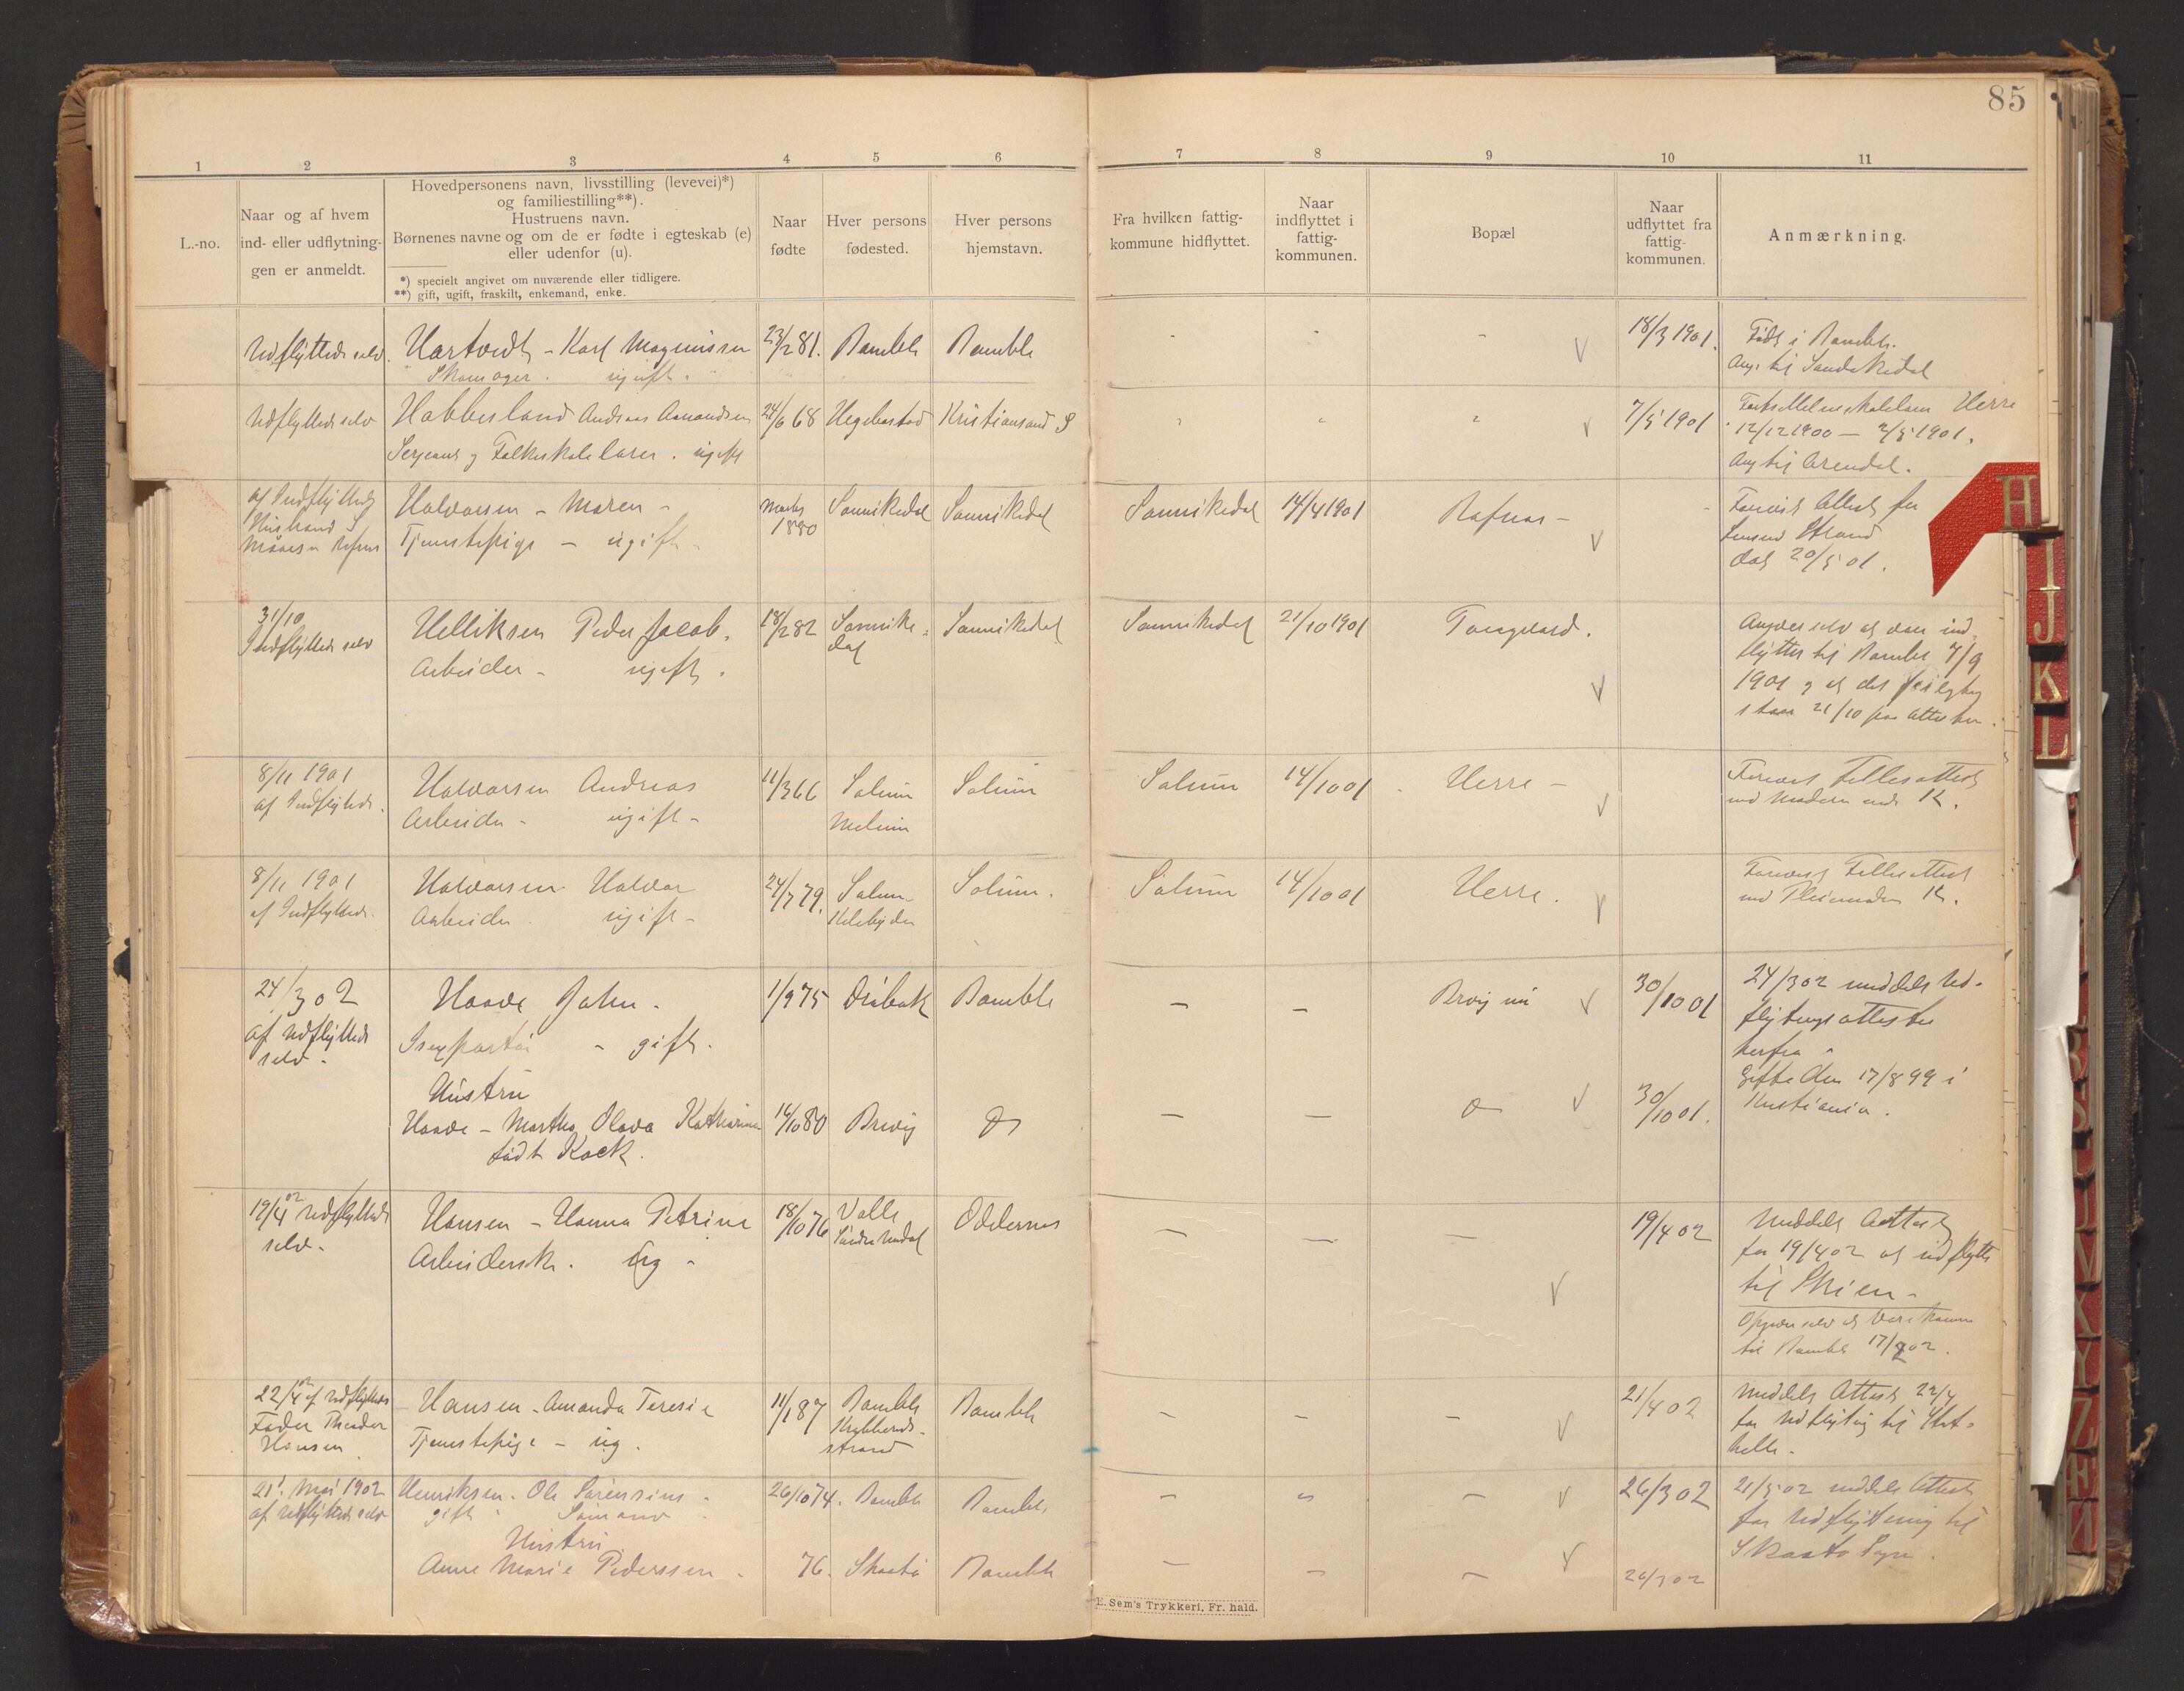 85
1 2 3 4 5 6 7 8 9 10 11
L.-no.
Naar og af hvem
ind- eller udflytnin-
gen er anmeldt.
Hovedpersonens navn, livsstilling (levevei)*)
og familiestilling**).
Hustruens navn.
Børnenes navne og om de er fødte i egteskab (e)
eller udenfor (u).
*) specielt angivet om nuværende eller tidligere.
**) gift, ugift, fraskilt, enkemand, enke.
Naar
fødte
Hver persons
fødested.
Hver persons
hjemstavn.
Fra hvilken fattig-
kommune hidflyttet.
Naar
indflyttet i
fattig-
kommunen.
Bopæl
Naar
udflyttet fra
fattig-
kommunen.
Anmærkning.
Udflyttede selv. Hartvedt - Karl Magnussen 23/2 81. Bamble Bamble - - - V 18/3 1901. Født i Bamble.
Skomager. ugift. Ang. til Sandøkedal
Udflyttede selv Habbesland Andreas Aamundsen 24/6 68 Hegebostad Kristiansand S V 7/5 1901 Herre
Sergeant og Folkeskolelærer. ugift 12/12 1900 - 2/5 1901.
Ang til Arendal.
af Indflyttede Halvorsen - Maren - Marts 1880 Sannikedal Sannikedal Sannikedal 14/4 1901 Rafnæs - V Forevist Attest fra
Husbond Tjenestepige - ugift - Lensmd Strand
dat 20/5 01.
31/10 Helliksen Peder Jacob. 18/2 82 Sannike- Sannikedal Sannikedal 21/10 1901 V
Indflyttede selv Arbeider - ugift. dal
Angiver selv at være ind-
flyttet til Bamble 7/9
1901 og at det feilagtig
staar 21/10 paa Attesten.
8/11 1901 Halvorsen Andreas 11/3 66 Solum Solum Solum 14/10 01. Herre - V Forevist Fellesattest
af Indflyttede. Arbeider - ugift - Melum med Moderen K.
8/11 1901 Halvorsen Halvor 24/7 79. Solum Solum. Solum 14/10 01 Herre. V Forevist Fellesattest
af Indflyttede. Arbeider ugift - med Pleiemoder K.
24/3 02 Haave John - 1/9 75 Drøbak Bamble - - Brevig V 30/10 01 24/3 02 meddelt Ud-
af Udflyttede Isexportør - gift. flytningsattester
selv - herfra
Hustru Gifte den 17/8 99 i
Haave - Martha Olava Katharina 14/10 80 Brevig - - V 30/10 01. Kristiania.
født Kock.
19/4 02 Udflyttede Hansen - Hanna Petrine 18/10 76 Valle Oddernes - - - 19/4 02 Meddelt Attest
selv - Arbeiderske. ug - Søndre Undal for 19/4 02 at udflytte
V til Skien -
Opgiver selv at være kommen
til Bamble 17/2 02.
22/4 02 af Udflyttedes Hansen - Amanda Teresie 11/1 87 Bamble Bamble - - - V 21/4 02 Meddelt Attest 22/4
Fader Theodor Tjenestepige - ug. strand for Udflytnig til Stat-
Hansen helle.
21. Mai 1902 Henriksen. Ole Sørensius. 26/10 74. Bamble Bamble - - - V 26/3 02 21/5 02 meddelt Attest
af Udflyttede selv gift - Sømand for Udflytning til
Hustru Skaatø Sogn.
Anne Marie Pederssen - 76. Skaatø Bamble - - - V 26/3 02
E. Sem's Trykkeri, Fr. hald.
H
I
J
K
L